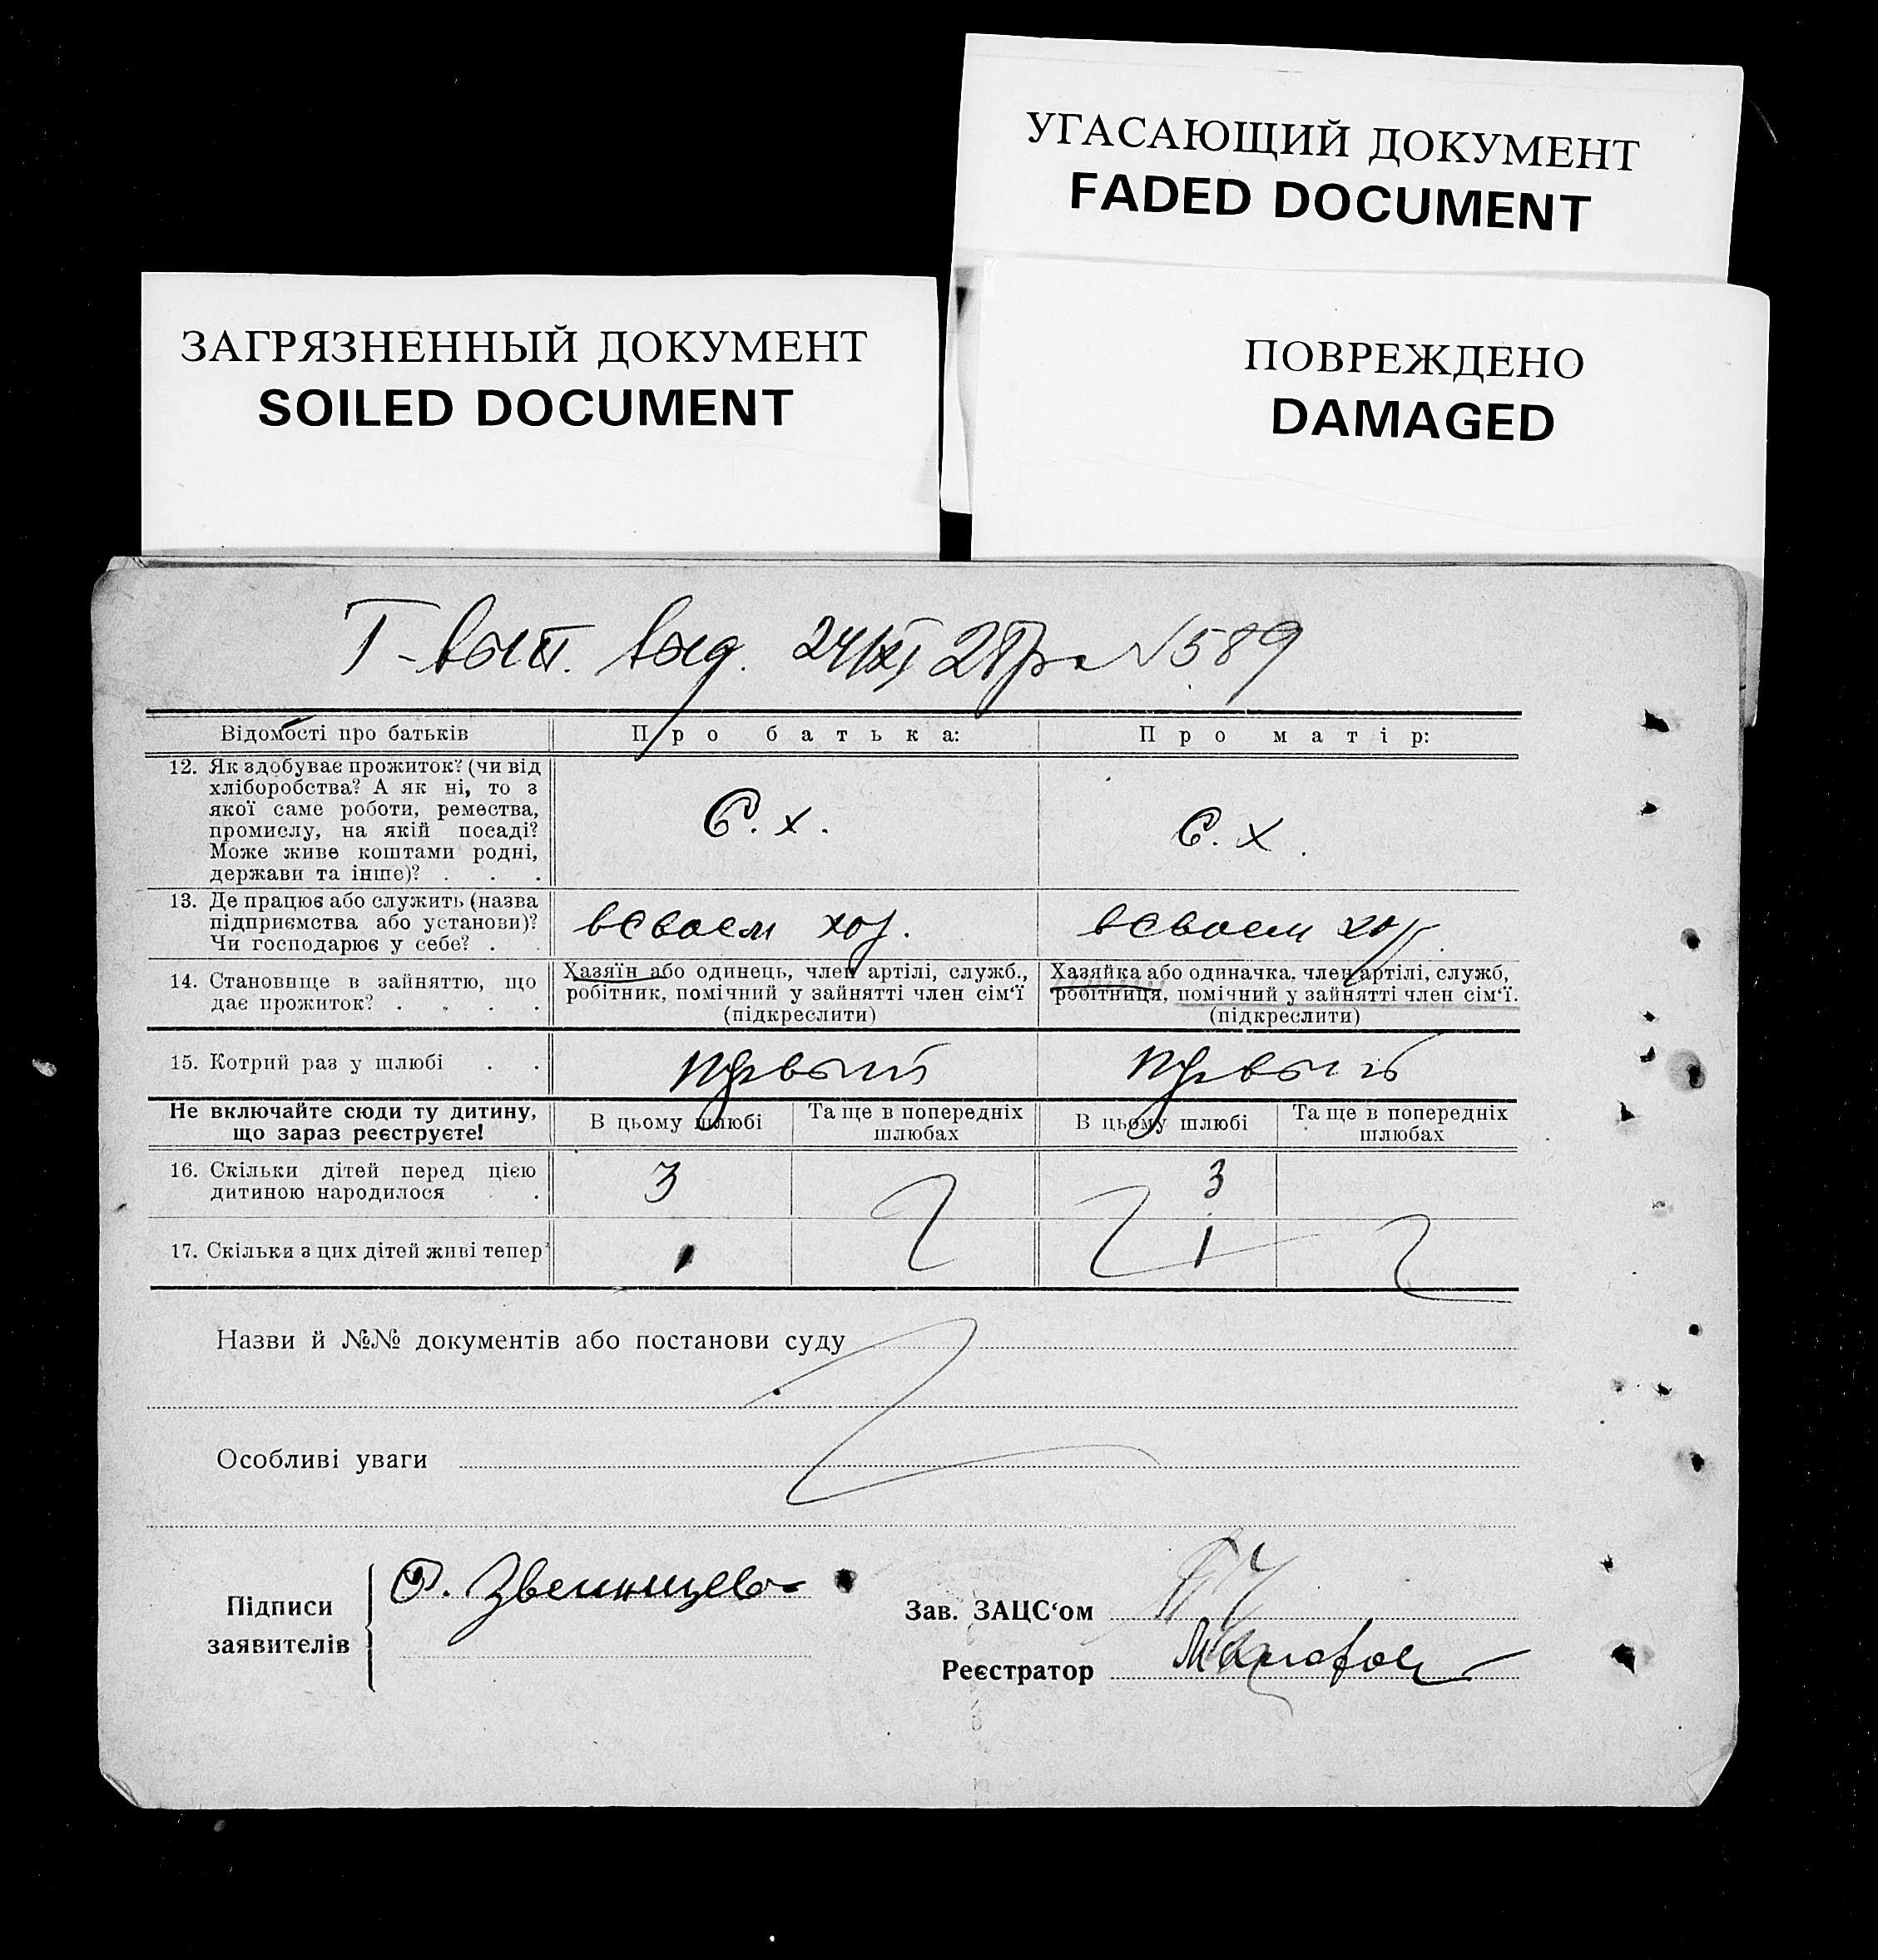 УГАСАЮЩИЙ ДОКУМЕНТ
FADED DOCUMENT
ЗАГРЯЗНЕННЫЙ ДОКУМЕНТ
SOILED DOCUMENT
ПОВРЕЖДЕНО
DAMAGED
I-вып. выд. 24/XI 28 №589
Відомості про батьків
Про батька:
Про матір:
12. Як здобуває прожиток? (чи від
хліборобства? А як ні, то з
якої саме роботи, ремества,
промислу, на якій посаді?
Може живе коштами родні,
держави та інше)? . . .
С. х.
С. х.
13. Де працює або служить (назва
підприємства або установи)?
Чи господарює у себе? . .
в своем хоз.
в своем хоз.
14. Становище в зайняттю, що
дає прожиток? . . . .
Хазяїн або одинець, член артілі, служб.,
робітник, помічний у зайнятті член сім‘ї
(підкреслити)
Хазяйка або одиначка, член артілі, служб,
робітниця, помічний у зайнятті член сім‘ї.
(підкреслити)
15. Котрий раз у шлюбі . .
первый
первый
Не включайте сюди ту дитину,
що зараз реєструєте!
В цьому шлюбі
Та ще в попередніх
шлюбах
В цьому шлюбі
Та ще в попередніх
шлюбах
16. Скільки дітей перед цією
дитиною народилося . .
3
3
17. Скільки з цих дітей живі тепер
1
1
Назви й №№ документів або постанови суду
Особливі уваги
Підписи
заявителів
Зав. ЗАЦС‘ом
Реєстратор